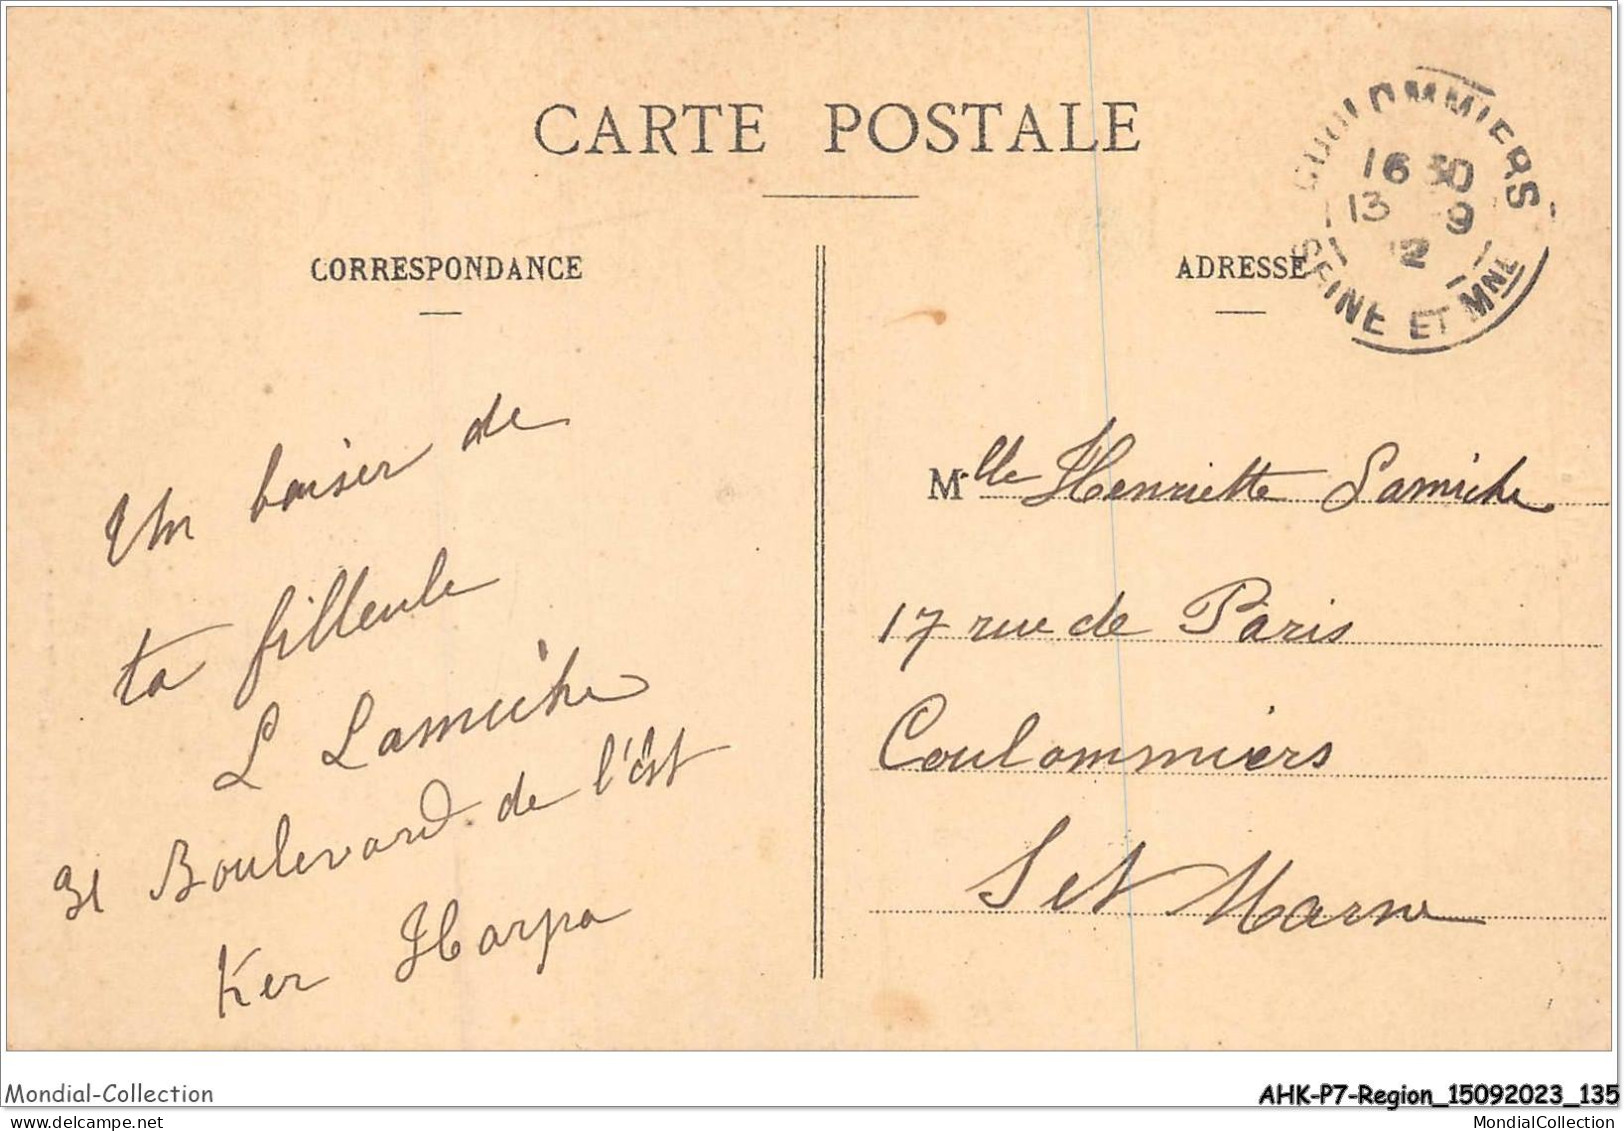 CARTE POSTALE
COULOMMIERS
16 30
13 -9
12
SEINE ET MNE
CORRESPONDANCE
ADRESSE
Un baiser de
ta filleule
L Lamiche
31 Boulevard de l'Est
Ker Harpa
Mlle Henriette Lamiche
17 rue de Paris
Coulommiers
S et Marne
Mondial-Collection
AHK-P7-Region_15092023_135
MondialCollection.com
MondialCollection